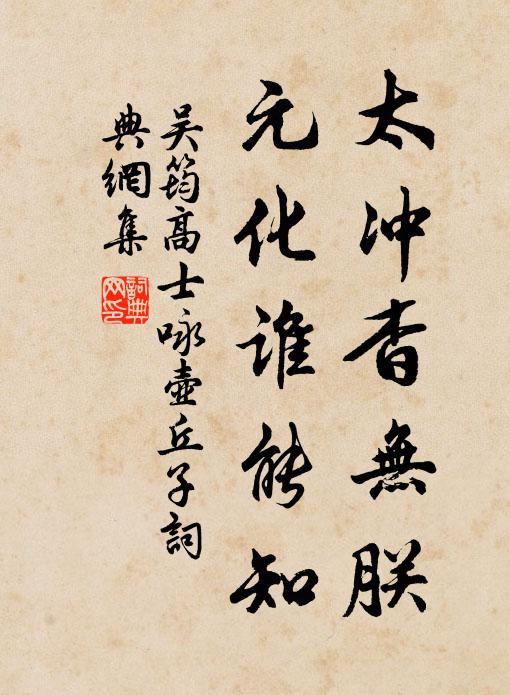 太冲杳無朕
元化谁能知
吴筠高士咏壺丘子詞
典網集
詞典
网印